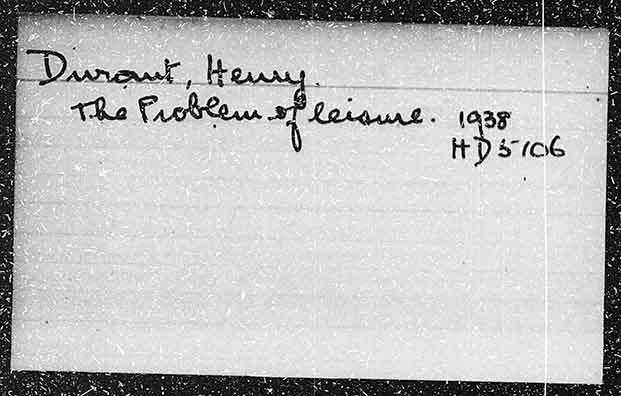 Durant, Henry.
The Problem of leisure. 1938
HD5106